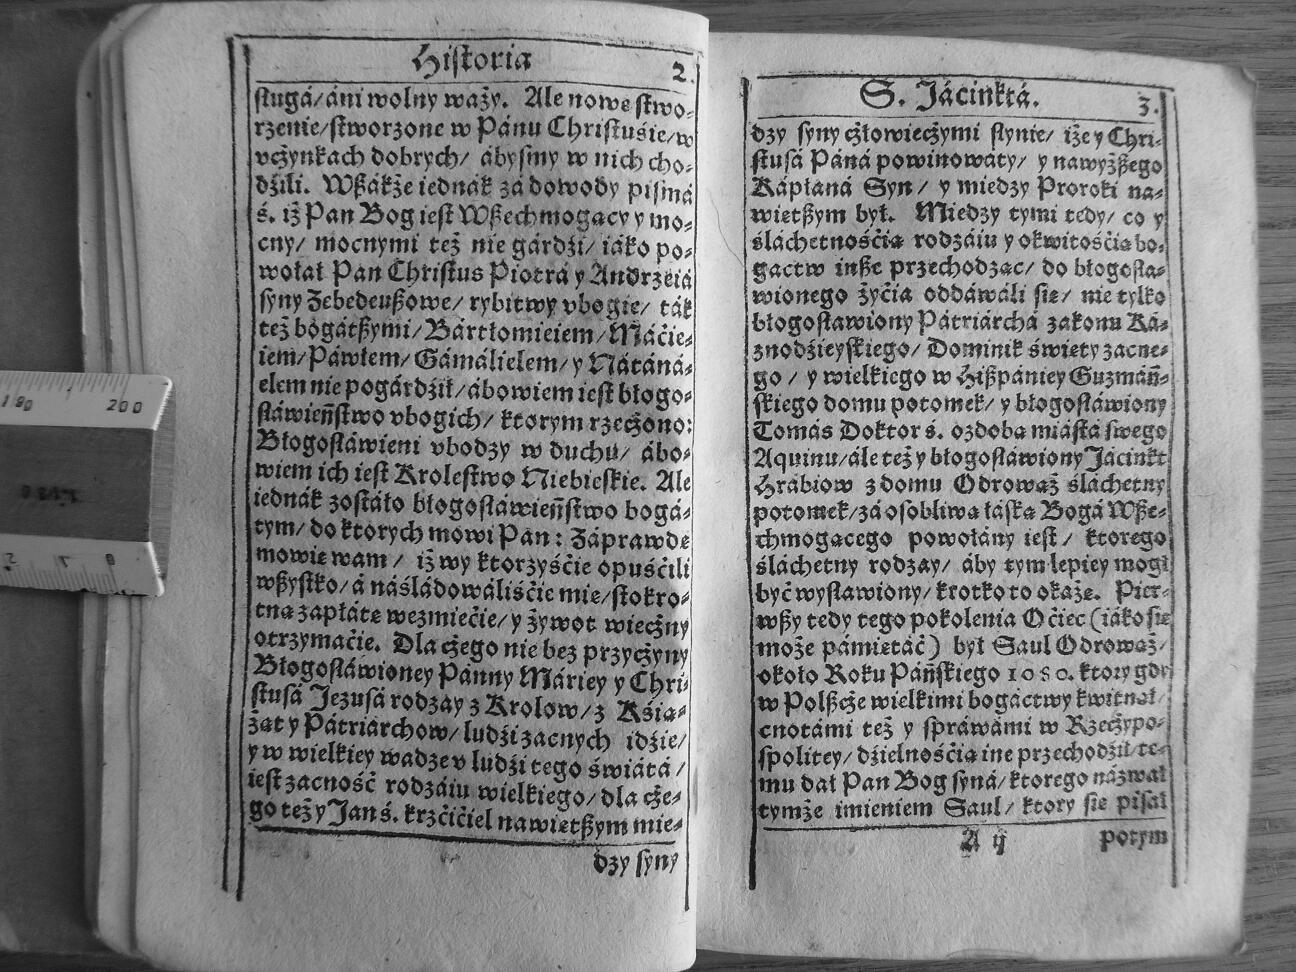 Historia
2.
sługá/áni wolny waży. Ale nowe stwo-
rzenie/stworzone w Pánu Christusie/w
vcżynkach dobrych/ ábysmy w nich cho-
dźili. Wßákże iednák zá dowody pismá
ś. iż Pan Bog iest Wßechmogący y mo-
cny/ mocnymi też nie gárdźi/ iáko po-
wołał Pan Christus Piotrá y Andrzeiá
syny Zebedeußowe/ rybitwy vbogie/ ták
też bogátßymi/ Bártłomieiem/ Máćie-
iem/ Páwłem/ Gámálielem/ y Nátáná-
elem nie pogárdźił/ ábowiem iest błogo-
słáwień̄stwo vbogich/ ktorym rzecżono:
Błogosłáwieni vbodzy w duchu/ ábo-
wiem ich iest Krolestwo Niebieskie. Ale
iednák zostáło błogosłáwień̄stwo bogá-
tym/ do ktorych mowi Pan: Záprawdę
mowię wam/ iż wy ktorzyśćie opuśćili
wßystko/ á náśládowáliśćie mię/ stokro-
tną zapłátę weźmiećie/ y żywot wiecżny
otrzymaćie. Dla cżego nie bez przycżyny
Błogosłáwioney Pánny Máriey y Chri-
stusá Jezusá rodzay z Krolow/ z Kśią-
żąt y Pátriárchow/ ludźi zacnych idźie/
y w wielkiey wadze v ludźi tego świátá/
iest zacność rodzáiu wielkiego/ dla cże-
go też y Jan ś. krzćićiel nawiętßym mię-
dzy syny
S. Jácinktá.
3.
dzy syny cżłowiecżymi słynie/ iże y Chri-
stusá Páná powinowáty/ y nawyżßego
Kápłaná Syn/ y miedzy Proroki na-
więtßym był. Miedzy tymi tedy/ co y
śláchetnośćią rodzáiu y okwitośćią bo-
gactw inße przechodząc/ do błogosłá-
wionego żyćia oddáwáli się/ nie tylko
błogosłáwiony Pátriárchá zakonu Ká-
znodźieyskiego/ Dominik święty zacne-
go/ y wielkiego w Hißpániey Guzmáń̄-
skiego domu potomek/ y błogosłáwiony
Tomás Doktor ś. ozdobá miástá swego
Aquinu/ ále też y błogosłáwiony Jácinkt
Hrábiow z domu Odrowąż śláchetny
potomek/ zá osobliwą łáską Bogá Wße-
chmogącego powołány iest/ ktorego
śláchetny rodzay/ áby tym lepiey mogł
być wysłáwiony/ krotko to okażę. Pier-
wßy tedy tego pokolenia Oćiec (iáko się
może pámiętáć) był Saul Odrowąż/
około Roku Páń̄skiego 1080. ktory gdy
w Polßcże wielkimi bogáctwy kwitnął/
cnotámi też y spráwámi w Rzecżypo-
spolitey/ dźielnośćią ine przechodźił/ te-
mu dał Pan Bog syná/ ktorego názwał
tymże imieniem Saul/ ktory się pisał
A ij
potym